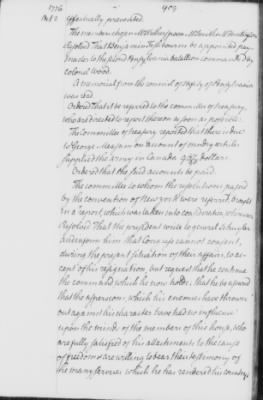 1776 909
Oct. 2 effectually prevented.
The members chosen Mr Wilson, Mr
Resolved That Benja be appointed pay
master to the second Pensylvania battalion commanded by
colonel Wood.
A memorial from the council of safety of Pensylvania
was read
Ordered That it be referred to the committee of treasury,
who are directed to report thereon as soon as possible.
The committee of treasury reported that there is due
to George Measam on account of sundry articles
supplied the army in Canada dollars
Ordered that the said accounts be paid.
The committee to whom the resolutions passed
by the convention of New york were referred, brought
in a report, which was taken into consideration whereupon
Resolved That the president write to general Schuyler
and inform him that Congress cannot consent,
during the present situation of their affairs, to ac
cept of his resignation, but request that he continue
the command which he now holds: that he be assured
that the aspersions, which his enemies have thrown
out against his character have had no influence
upon the minds of the members of this house, who
are fully satisfied of his attachment to the cause
of freedom & are willing to bear their testimony of
the many services which he has rendered his country,